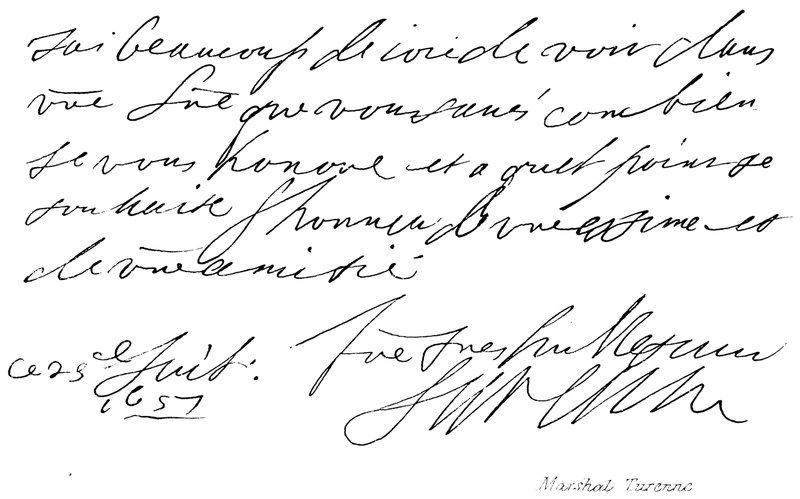 Jai beaucoup de ioie de voir dans
vr̄e lr̄e que vous saués combien
Je vous honore et a quel point Je
souhaite lhonneur de vr̄e estime et
de vr̄e amitié
vr̄e tres
ce 29e Juil:
1657
Turenne
Marshal Turenne